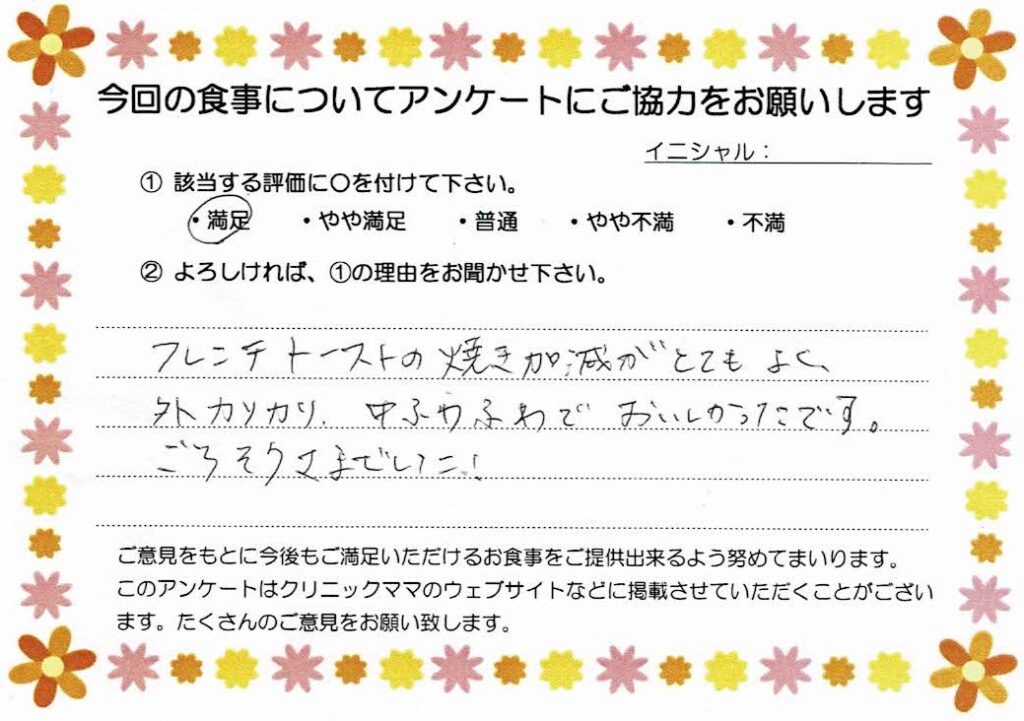 今回の食事についてアンケートにご協力をお願いします
イニシャル：
① 該当する評価に〇を付けて下さい。
・満足 ・やや満足 ・普通 ・やや不満 ・不満
② よろしければ、①の理由をお聞かせ下さい。
フレンチトーストの焼き加減がとてもよく、
外カリカリ、中ふわふわでおいしかったです。
ごちそうさまでした!
ご意見をもとに今後もご満足いただけるお食事をご提供出来るよう努めてまいります。
このアンケートはクリニックママのウェブサイトなどに掲載させていただくことがござい
ます。たくさんのご意見をお願い致します。